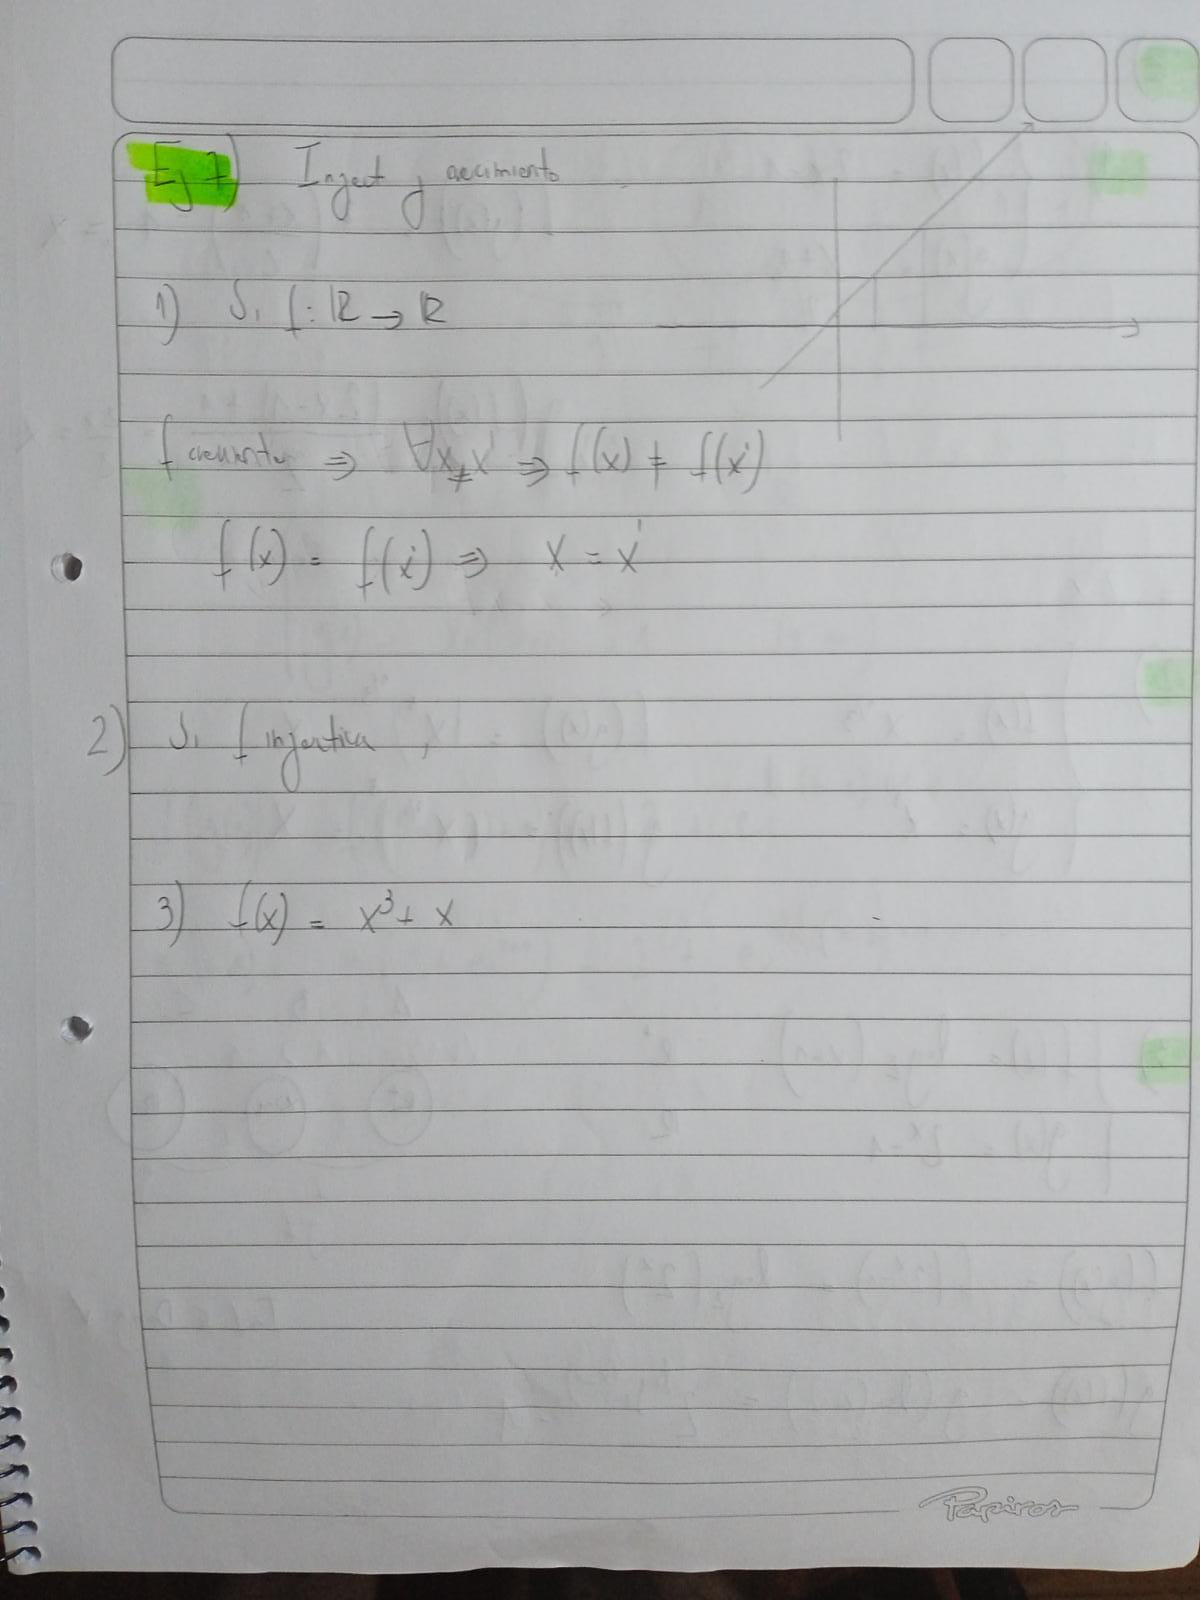 Ej 7) Inject y crecimiento
1) Si f: ℝ → ℝ
f creciente ⇒ ∀x≠x' ⇒ f(x) ≠ f(x')
f(x) = f(x') ⇒ x = x'
2) Si f injectiva,
3) f(x) = x³ + x
Papiros